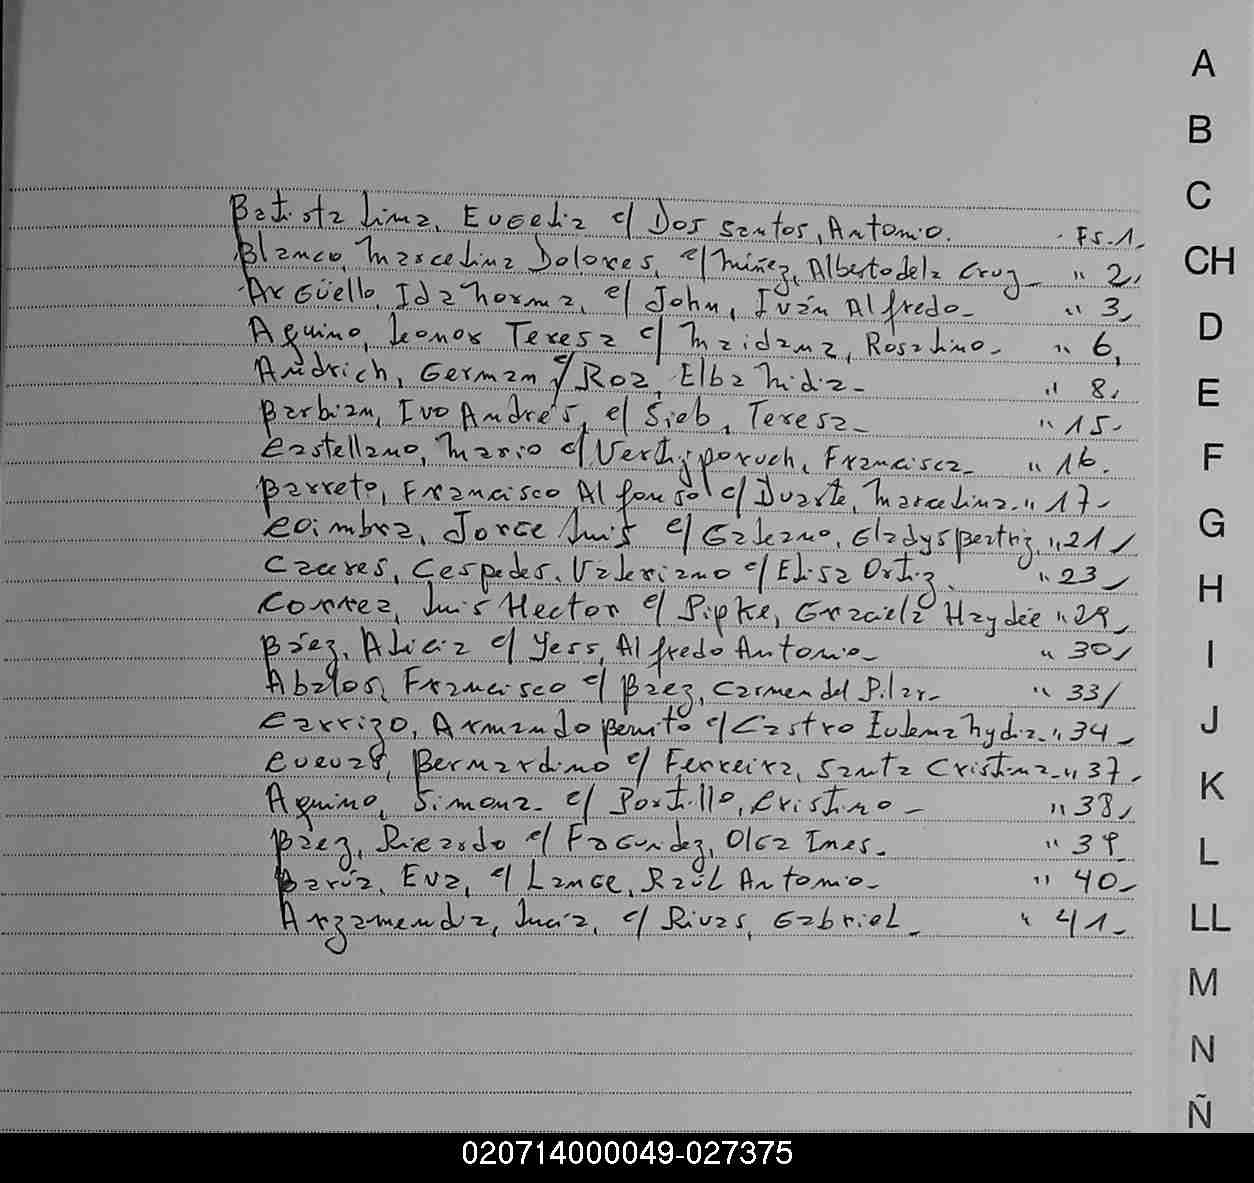 Batista Lima, Eugenia c/ Dos Santos, Antonio. Fs. 1.
Blanco, Marcelina Dolores, c/ Núñez, Alberto de la Cruz - " 2,
Argüello, Ida Norma, c/ John, Iván Alfredo - " 3,
Aquino, Leonor Teresa c/ Maidana, Rosalino - " 6,
Andrich, German c/ Roa, Elba Nidia - " 8,
Barbian, Ivo Andrés, c/ Sieb, Teresa - " 15.
Castellano, Mario c/ Francisca - " 16.
Barreto, Francisco Alfonso c/ Duarte, Marcelina. " 17-
Coimbra, Jorge Luis c/ Galeano, Gladys Beatriz, " 21,
Caceres, Cespedes, Valeriano c/ Elisa Ortiz. " 23,
Correa, Luis Hector c/ Pipke, Graciela Haydée " 29,
Báez, Alicia c/ Yess, Alfredo Antonio - " 30,
Abalos, Francisco c/ Baez, Carmen del Pilar - " 33,
Carrizo, Armando Benito c/ Castro Eulena Lydia - " 34 -
Cuevas, Bernardino c/ Ferreira, Santa Cristina - " 37.
Aquino, Simona - c/ Portillo, Cristino - " 38,
Baez, Ricardo c/ Fagundez, Olga Ines. " 39
Barúa, Eva, c/ Lange, Raúl Antonio - " 40 -
Arzamendia, Lucia, c/ Rivas, Gabriel - " 41 -
A
B
C
CH
D
E
F
G
H
I
J
K
L
LL
M
N
Ñ
020714000049-027375